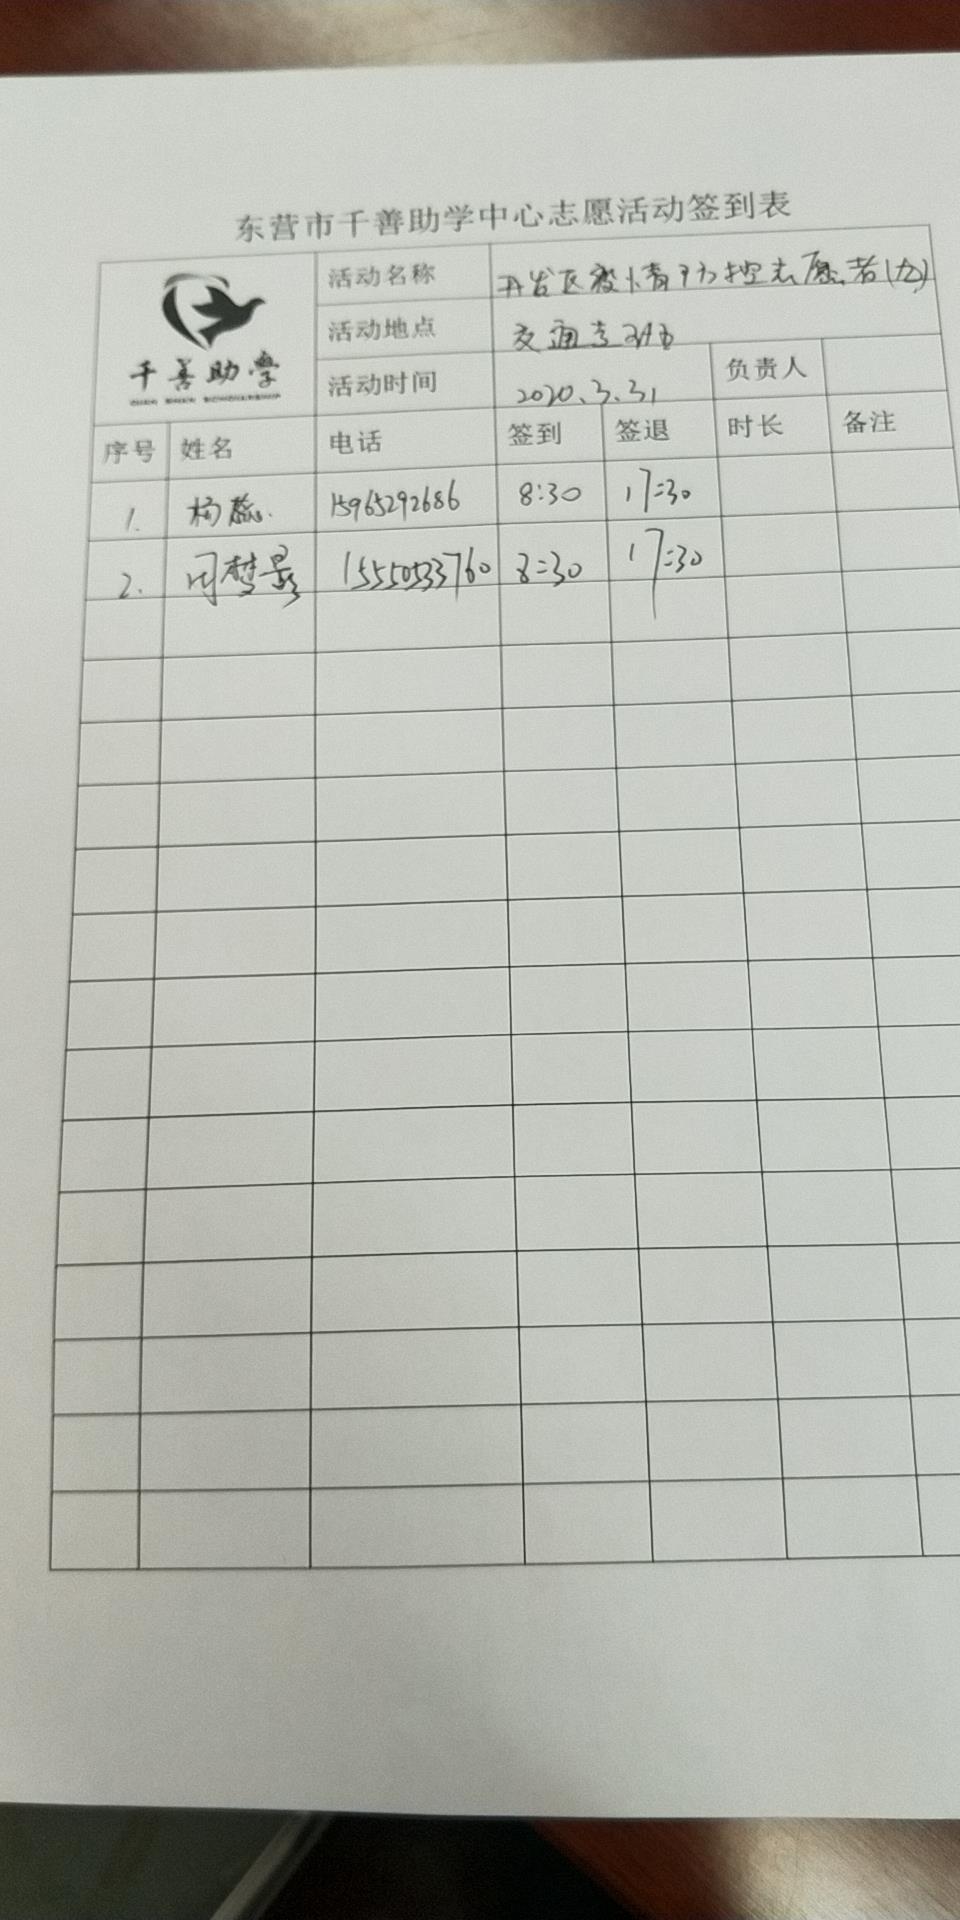 东营市千善助学中心志愿活动签到表
千善助学
活动名称 开发区疫情防控志愿者(九)
活动地点 交通
活动时间 2020.3.31 负责人
序号 姓名 电话 签到 签退 时长 备注
1. 杨蕊 15965292686 8:30 17:30
2. 周梦景 15550533760 8:30 17:30